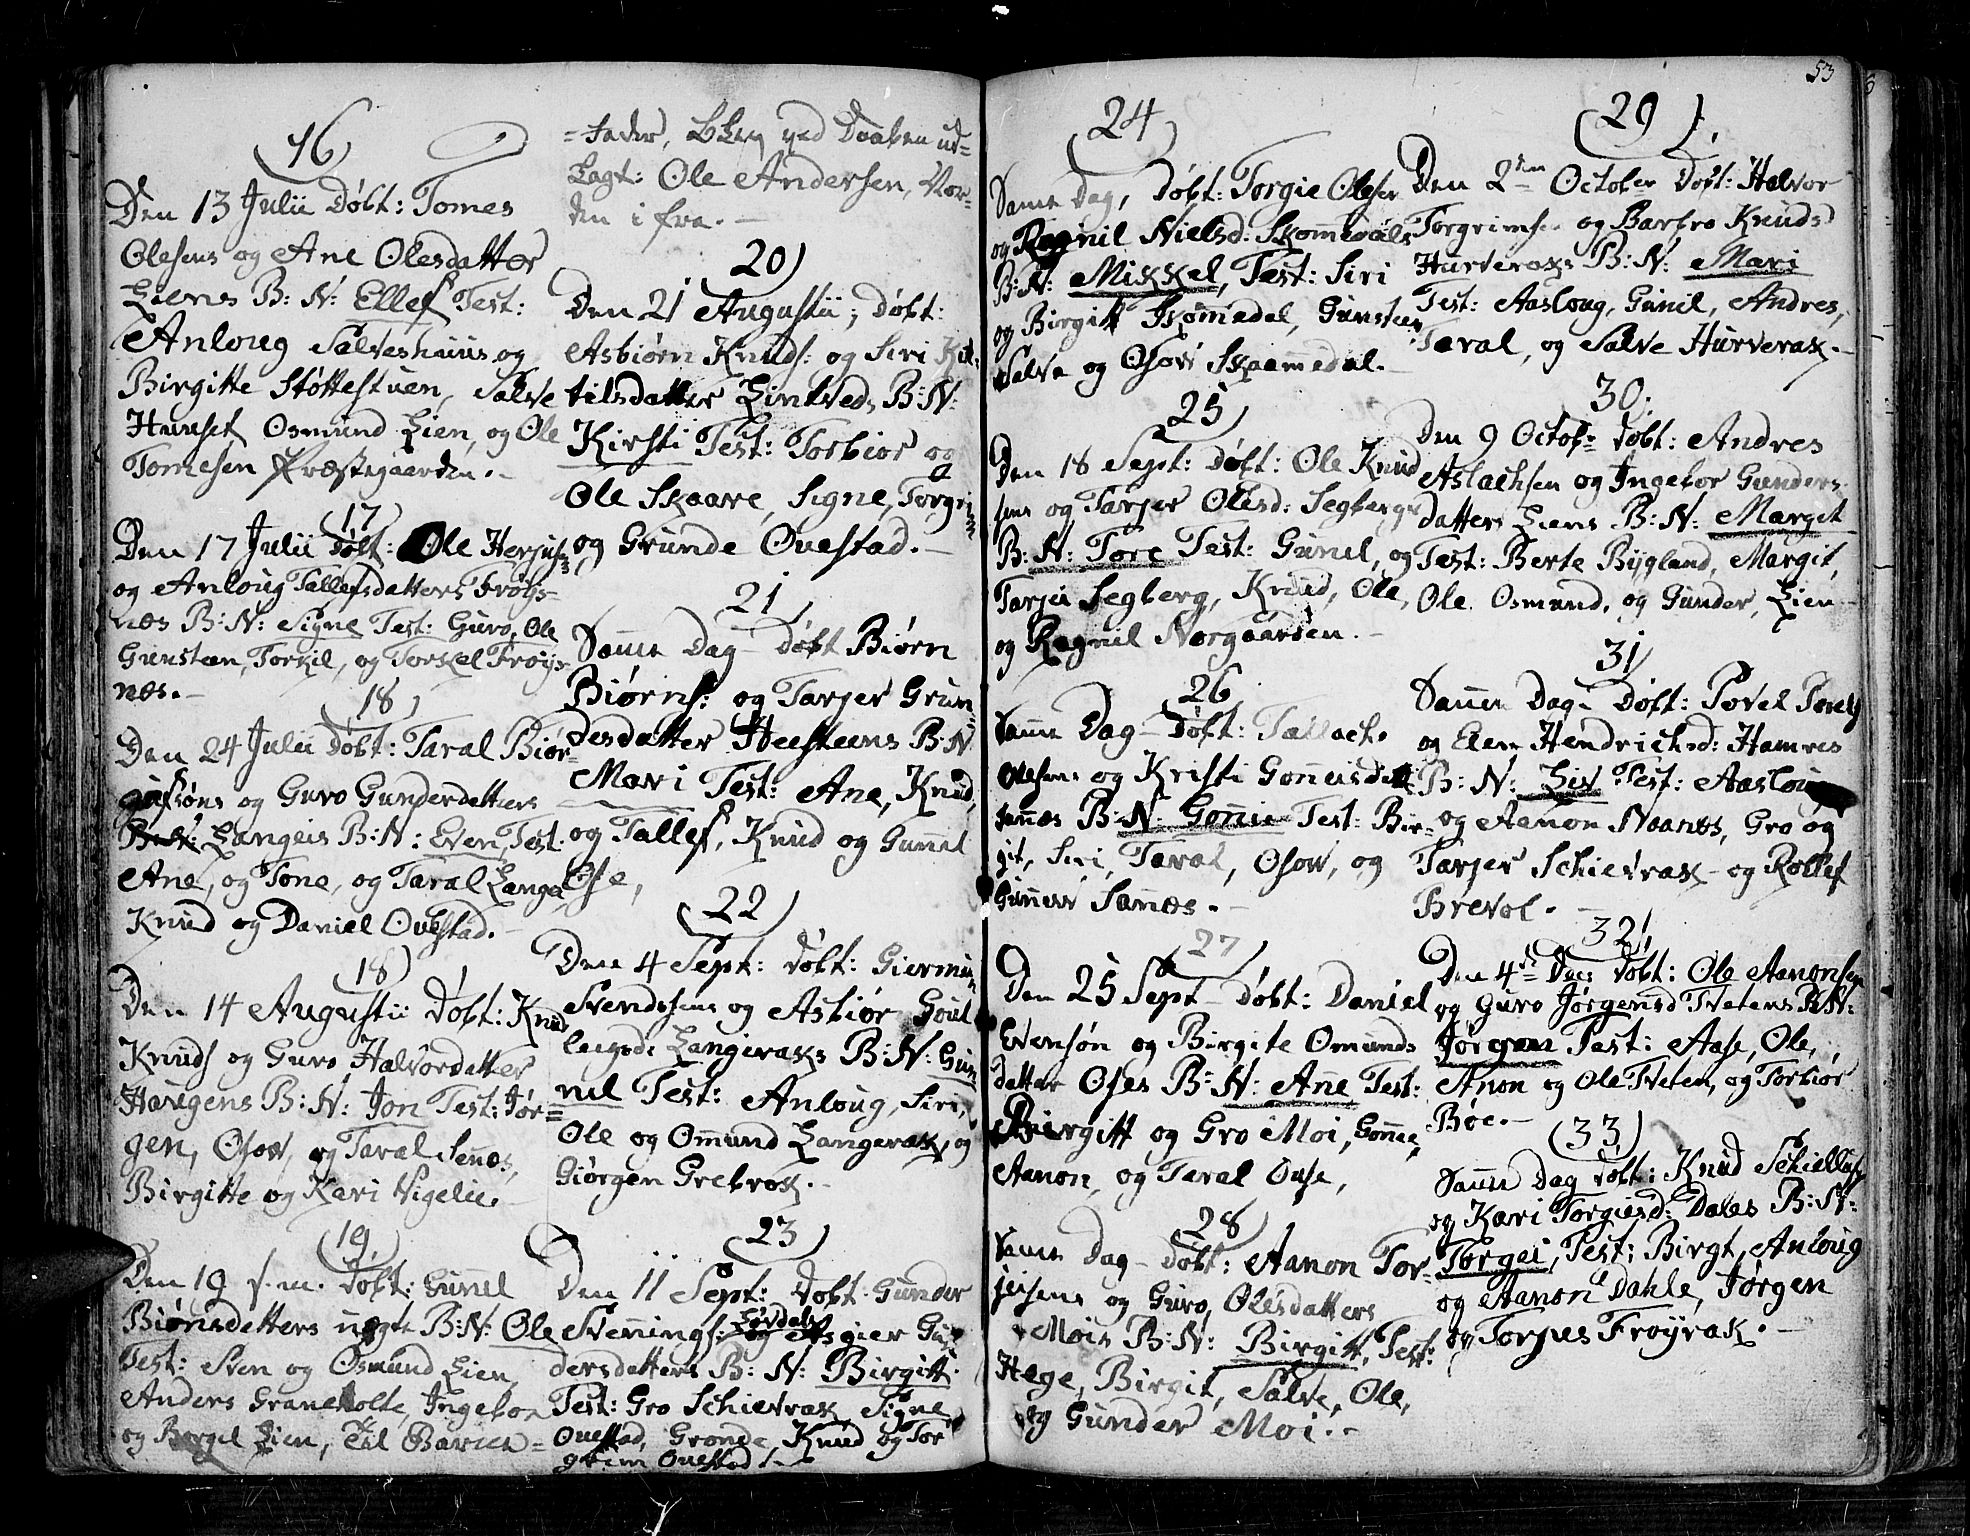 16
Den 13 Julii Døbt: Tomes
Olesens og Ane Olesdatter
Liens B: N: Ellef Test:
Anloug Salveshuus og
Birgitte Støttestuen, Salve
Huuset Osmund Lien, og Ole
Tomesen Præstegaarden.-
17
Den 17 Julii Døbt: Ole Herjuls:
og Anloug Tallefsdatters Frøys-
næs B: N: Signe Test: Guro, Ole
Gunsteen, Torkil, og Torkel Frøys-
næs.-
18
Den 24 Julii Døbt: Taral Biør-
gufsøns og Guro Gunderdatters
Langeis B:N: Even, Test.
Ane, og Tone, og Taral Langei,
Knud og Daniel Ovestad.-
18
Den 14 Augustii Døbt: Knud
Knuds og Guro Halvordatter
Haugens B:N: Jon Test: Jør-
gen, Osow, og Taral Senes,
Birgitte og Kari Vigelie.
19
Den 19 s.m. Døbt: Gunil
Biønsdatters uægte B:N: Ole
Test: Sven og Osmund Lien,
Anders Graneholte, Ingebor
og Lien, Til Barnen-
-Fader, blev ved Daaben ud-
lagt: Ole Andersen, Nor-
den i fra.-
20
Den 21 Augustii, Døbt:
Asbiørn Knuds: og Siri Kit-
tilsdatter Lintveds B:N:
Kirsti Test: Torbior og
Ole Skaare, Signe, Torgrim
og Grunde Ovestad.-
21
Samme Dag- Døbt Biørn
Biørns: og Tarjer Grun-
desdatter Heesteens B:N
Mari Test: Ane, Knud,
og Tallef, Knud og Gunnel
Ose,
22
Den 4 Sept: Døbt: Giermun
Svendsens og Asbiør Goul
leigsd: Langeraks B:N: Gun-
nil Test: Anloug, Siri,
Ole og Omund Langerak, og
Giørgen Grebrok.-
23
Den 11 Sept: Døbt Gunder
Svennings: Løvdals og Asgier Gun
dersdatters B: N: Birgitt.
Test: Gro Schievrak, Signe
Ouestad, Gronde, Knud og Tor
grim Ouestad.-
53
24
Samme Dag, Døbt: Torgie Olesen
og Ragnil Nielsd: Skommedals
B:N: Mikkel, Test: Siri
og Birgitt Skomedal, Gunsteen
Salve og Osow Skaamedal.-
25
Den 18 Sept: Døbt: Ole Knud
sens og Tarjer Olesd: Segbergs
B: N: Tore Test: Gunil, og
Tarjei Segberg, Knud, Ole,
og Ragnil Norgaarden.-
26
Samme Dag- Døbt: Tallach
Olesens og Kristi Gonneisdatt
senæs B: N: Gonnie Test: Bir-
git, Siri, Taral, Osow, og
Gunner Sanæs.-
27
Den 25 Sept- Døbt: Daniel
Evensøn og Birgite Omunds
datter Oses B: N: Ane Test:
Birgitt og Gro Moi, Gonne,
Aanon, og Taral Ouse,
28
Samme Dag- Døbt: Aanon Tor-
jeisens og Guro, Olesdatters
Mois B: N: Birgitt, Test:
Hege, Birgit, Salve, Ole,
og Gunder Moi.-
29
Den 2den October Døbt: Halvor
Torgrimse og Barbro Knuds
Hurveraks B: N: Mari
Test: Aasloug, Gunil, Andres,
Taral, og Salve Hurverak.-
30.
Den 9 Octob: Døbt: Andres
Aslachsen og Ingebor Gunders
datters Liens B: N: Margit
Test: Berte Bygland, Margit,
Ole. Osmund, og Gunder, Lien-
31
Samme Dag- Døbt: Povel Povels
og Elen Hendrichsd: Hamres
B: N: Liv Test: Aasloug
og Aanon Naanæs, Gro og
Tarjer Schievrak- og Rollef
Brevol.-
32
Den 4de Dec: Døbt: Ole Aanonsen
og Guro Jørgensd Tvetens B:N:
Jørgen Test: Aase, Ole,
Anon og Ole Tveten, og Torbior
Bøe.-
33
Samme Dag Døbt: Knud Schiellufs
og Kari Torgiesd: Dales B: N:
Torgei, Test: Birgt, Anloug
og Aanon Dahle, Jørgen
og Torjus Frøyrak.-